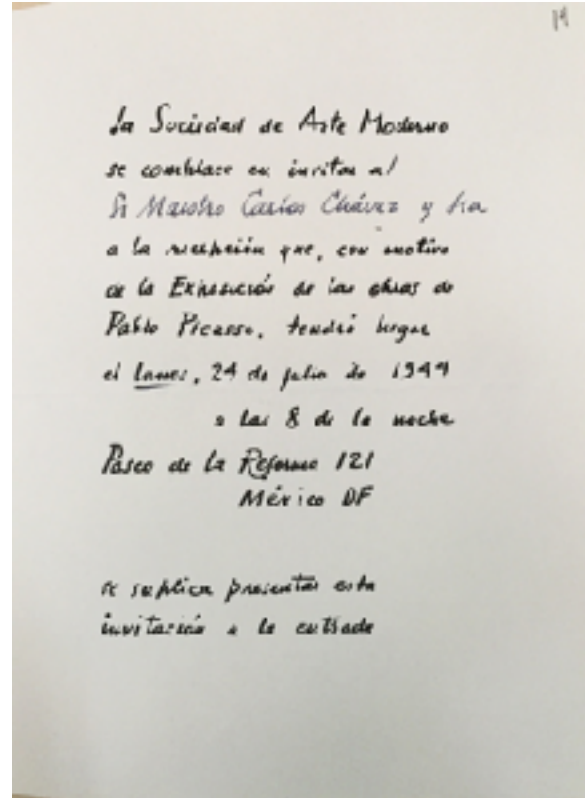 19
La Sociedad de Arte Moderno
se complace en invitar al
Sr Maestro Carlos Chávez y Sra
a la recepción que, con motivo
de la Exposición de las obras de
Pablo Picasso, tendrá lugar
el lunes, 24 de julio de 1944
a las 8 de la noche
Paseo de la Reforma 121
México DF
se suplica presentar esta
invitación a la entrada